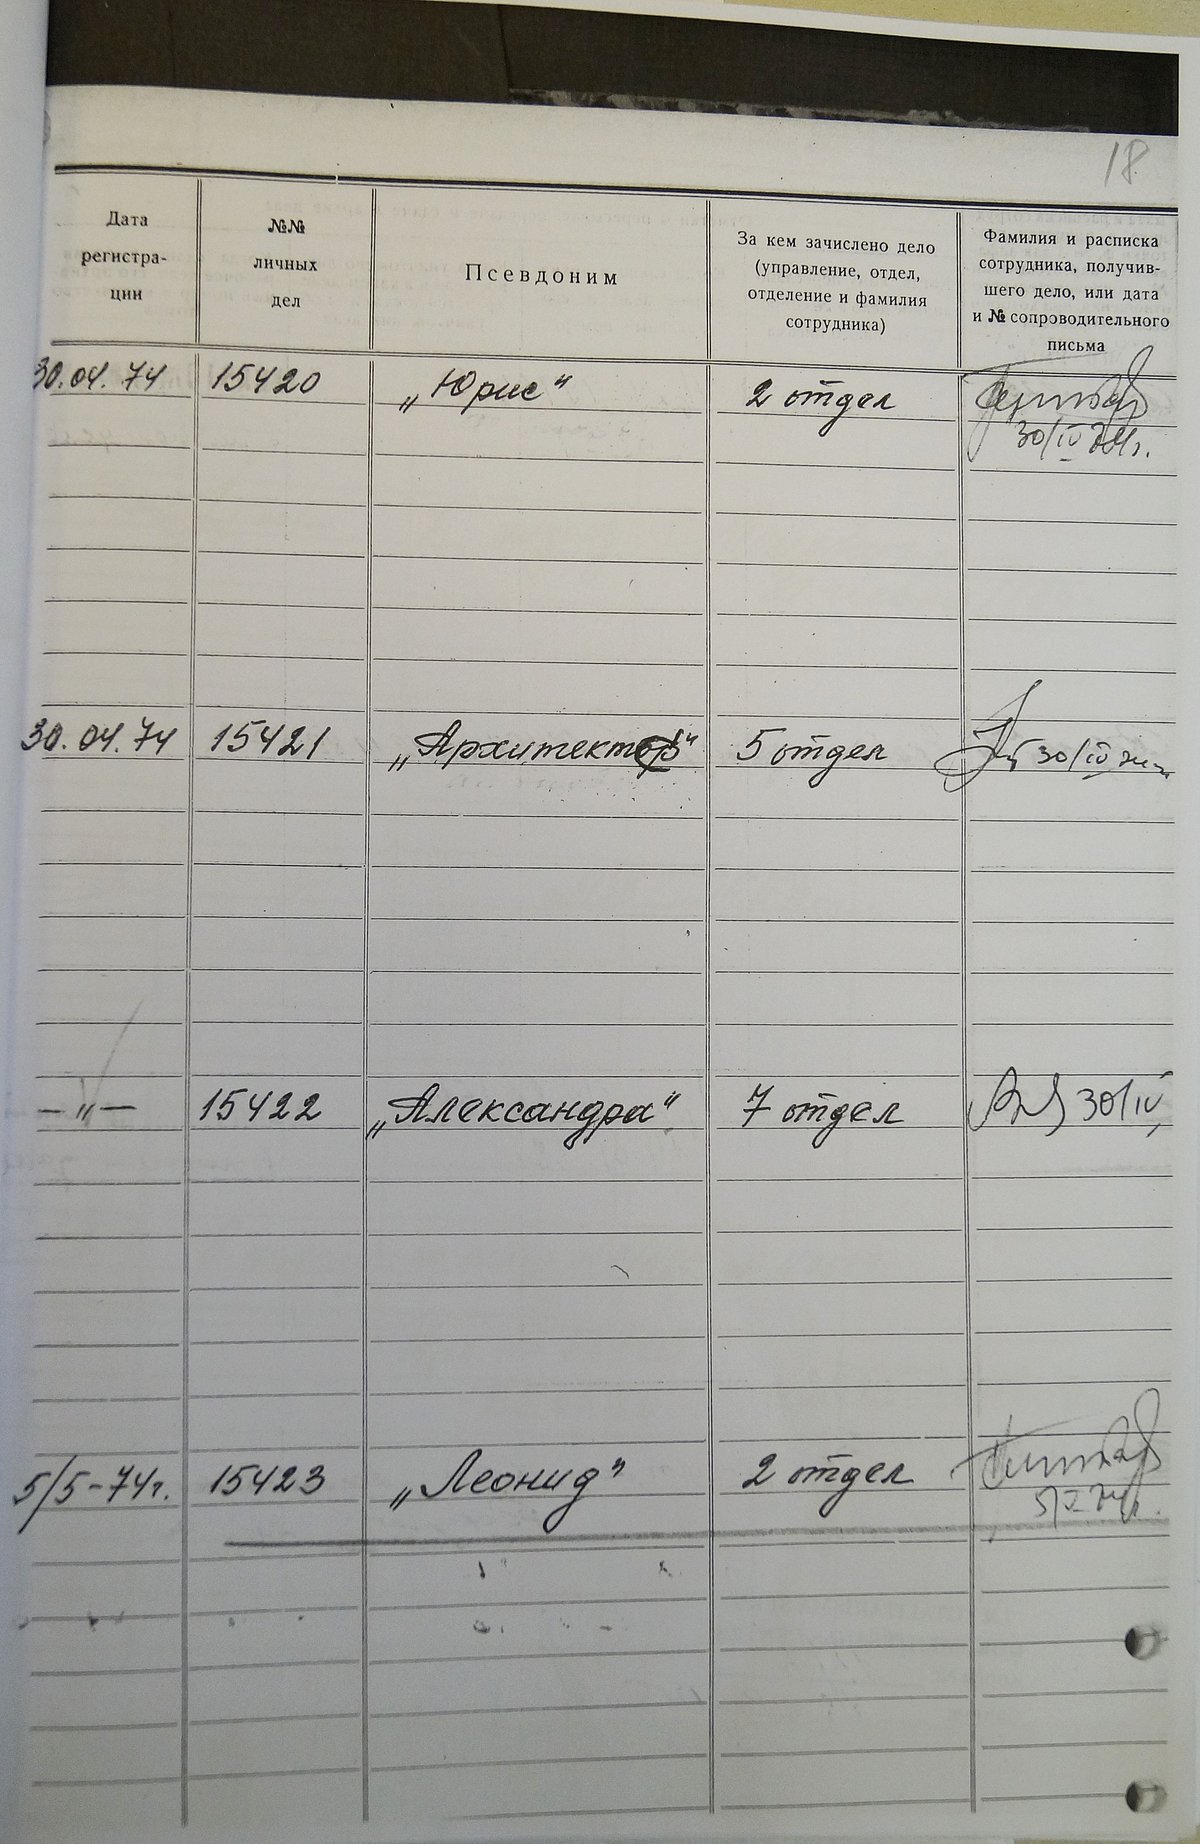 18
Дата
регистра-
ции
№№
личных
дел
Псевдоним
За кем зачислено дело
(управление, отдел,
отделение и фамилия
сотрудника)
Фамилия и расписка
сотрудника, получив-
шего дело, или дата
и № сопроводительного
письма
30.04.74 15420 „Юрис“ 2 отдел
30/IV 74г.
30.04.74 15421 „Архитектор“ 5 отдел 30/IV
—„— 15422 „Александра“ 7 отдел 30/IV
5/5-74г. 15423 „Леонид“ 2 отдел
5/V 74г.